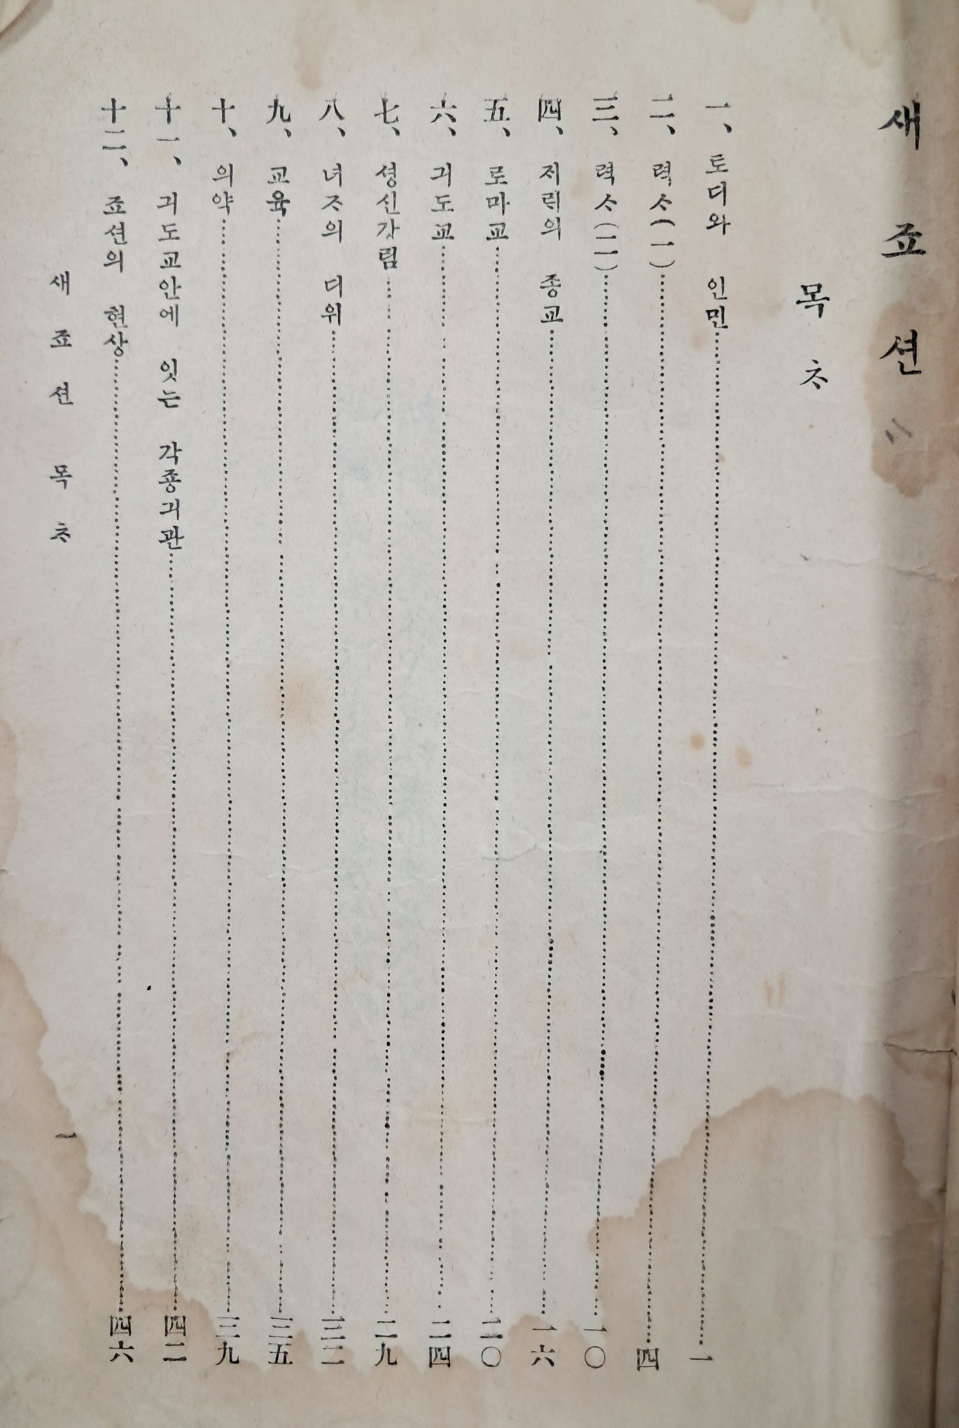 새 죠션
목ᄎᆞ
一、토디와 인민……一
二、력ᄉᆞ(一)……四
三、력ᄉᆞ(二)……一〇
四、ᄌᆡᄅᆡ의 종교……一六
五、로마교……二〇
六、긔도교……二四
七、셩신강림……二九
八、녀ᄌᆞ의 디위……三二
九、교육……三五
十、의약……三九
十一、긔도교안에 잇는 각죵긔관……四二
十二、죠션의 현상……四六
새죠션 목ᄎᆞ 一